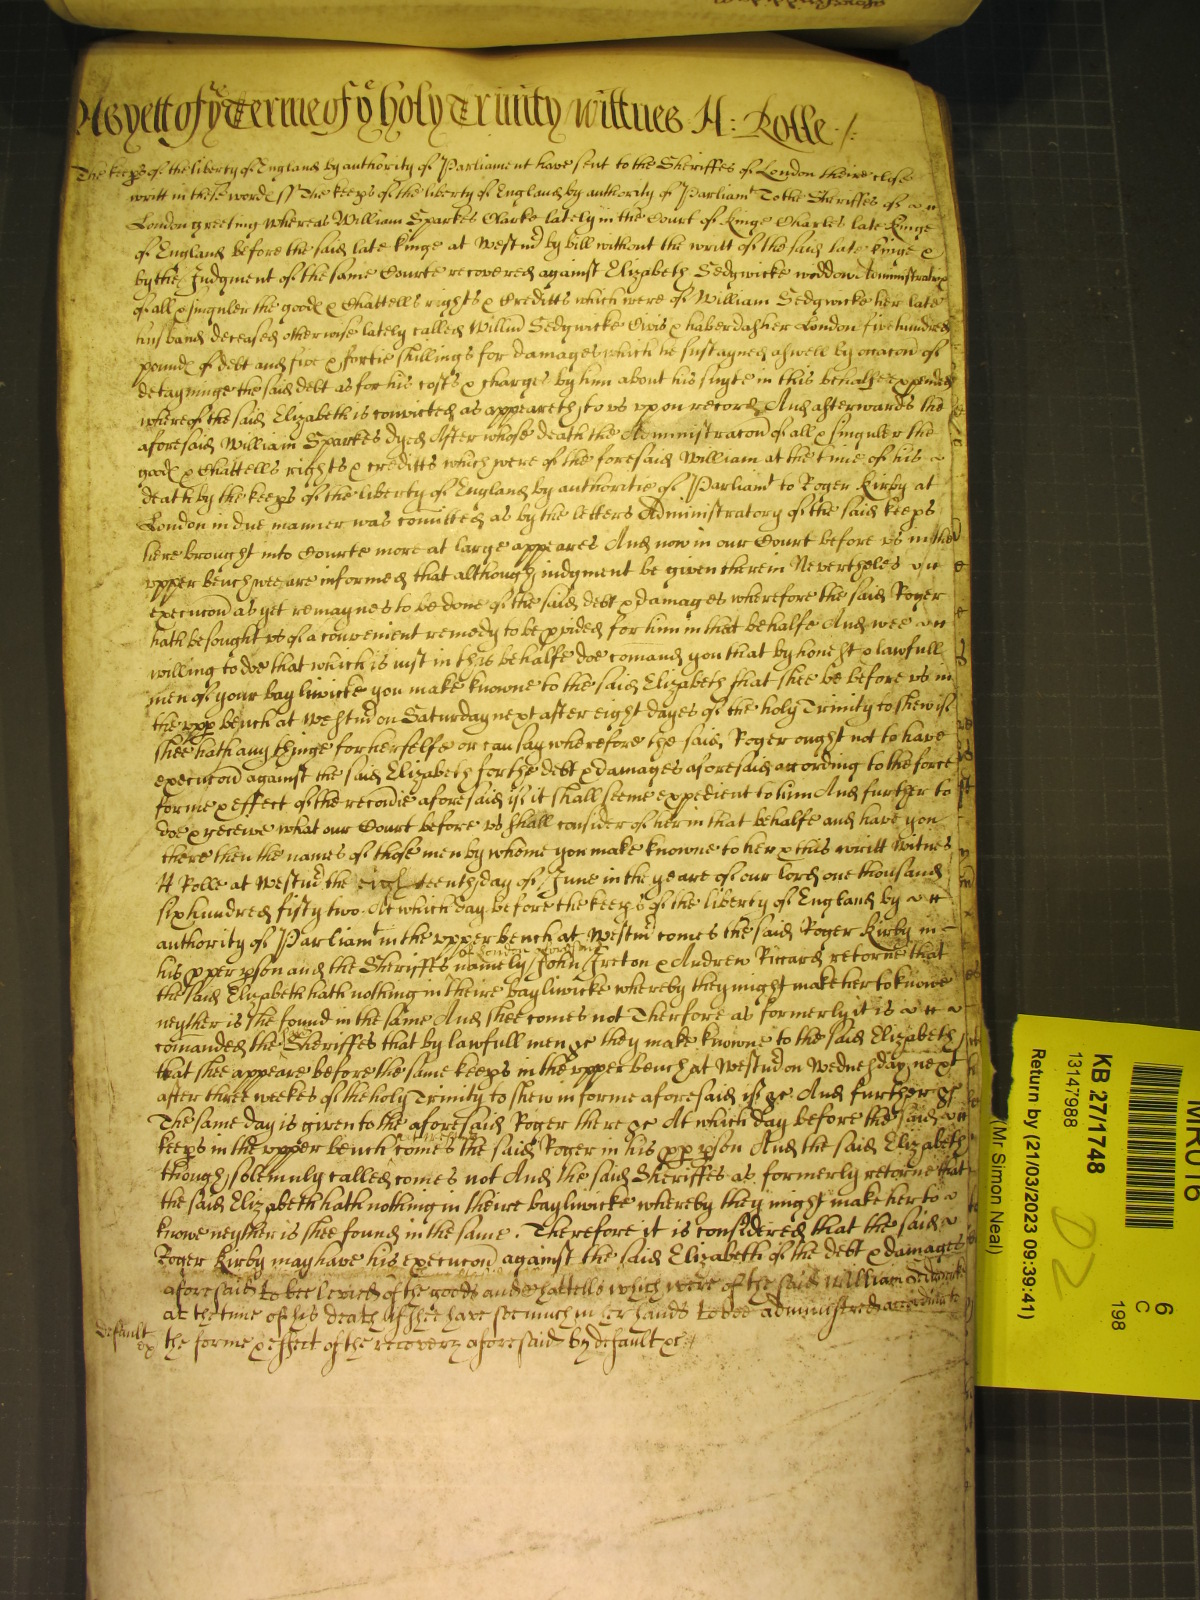 As yett of ye Terme of ye holy Trinity Wittnes H: Rolle ./:
The keeps of the liberty of England by authority of Parliament have sent to the Sheriffes of London theire close
writt in these words ss The keeps of the liberty of England by authority of Parliamt To the Sheriffes of
London greeting Whereas William Sparkes Clarke lately in the Court of Kinge Charles late Kinge
of England before the said late kinge at Westmr by bill without the writt of the said late kinge &
by the Judgment of the same Courte recovered against Elizabeth Sedgwicke widdow Administratrx
of all & singuler the goods & Chattells rights & Creditts which were of William Sedgwicke her late
husband deceased otherwise lately called Willm Sedgwicke Civis & haberdasher London five hundred
pounds of debt and five & fortie shillings for damages which he sustayned aswell by occacon of
detayninge the said debt as for his costs & charges by him about his suyte in this behalfe expended
whereof the said Elizabeth is convicted as appeareth to us upon record And afterwards the
aforesaid William Sparkes dyed After whose death the Administracon of all & singuler the
goods & Chattells rights & creditts which were of the foresaid William at the time of his
death by the keeps of the liberty of England by authoritie of Parliamt to Roger Kirby at
London in due manner was comitted as by the letters Administratory of the said keeps
here brought into Courte more at large appeares And now in our Court before us in the
upper bench wee are informed that although judgment be given therein Neverthelese
execucon as yet remaynes to be done of the said debt & damages wherefore the said Roger
hath besought us of a convenient remedy to be pvided for him in that behalfe And wee
willing to doe that which is iust in this behalfe doe comand you that by honest & lawfull
men of your bayliwicke you make knowne to the said Elizabeth that shee be before us in
the upp bench at Westmr on Saturday next after eight dayes of the holy Trinity to shew if
shee hath any thinge for herselfe or can say wherefore the said Roger ought not to have
execucon against the said Elizabeth for the debt & damages aforesaid according to the force
forme & effect of the recovrie aforesaid if it shall seeme expedient to him And further to
doe & receive what our Court before us shall consider of her in that behalfe and have you
there then the names of those men by whome you make knowne to her & this writt Witnes
H Rolle at Westmr the eighteenth day of June in the yeare of our lord one thousand
six hundred fifty two At which day before the keeps of the liberty of England by
authority of Parliamt in the upper bench at Westmr comes the said Roger Kirby in
his pper pson and the Sheriffes namely John Ireton & Andrew Riccard retorne that
the said Elizabeth hath nothing in theire bayliwicke whereby they might make her to knowe
neyther is she found in the same And shee comes not Therfore as formerly it is
comanded the Sheriffes that by lawfull men &c they make knowne to the said Elizabeth
that shee appeare before the same keeps in the upper bench at Westmr on Wednesday next
after three weekes of the holy Trinity to shew in forme aforesaid if &c And further &c
The same day is given to the aforesaid Roger there &c At which day before the said
keeps in the upper bench comes the said Roger in his pp pson And the said Elizabeth
though solemnly called comes not And the said Sheriffes as formerly retorne that
the said Elizabeth hath nothing in theire bayliwicke whereby they might make her to
knowe neyther is shee found in the same. Therefore it is considered that the said
Roger Kirby may have his execucon against the said Elizabeth of the debt & damages
aforesaid to bee levied of the goods and Chattells which were of the said William Sedgwicke
at the time of his death if shee have soe much in her hands to bee administred according to
default
the forme & effect of the recovery aforesaid by default &c
KB 27/1748
13147988
Return by (21/03/2023 09:39:41)
(Mr Simon Neal)
D2
6
C
198